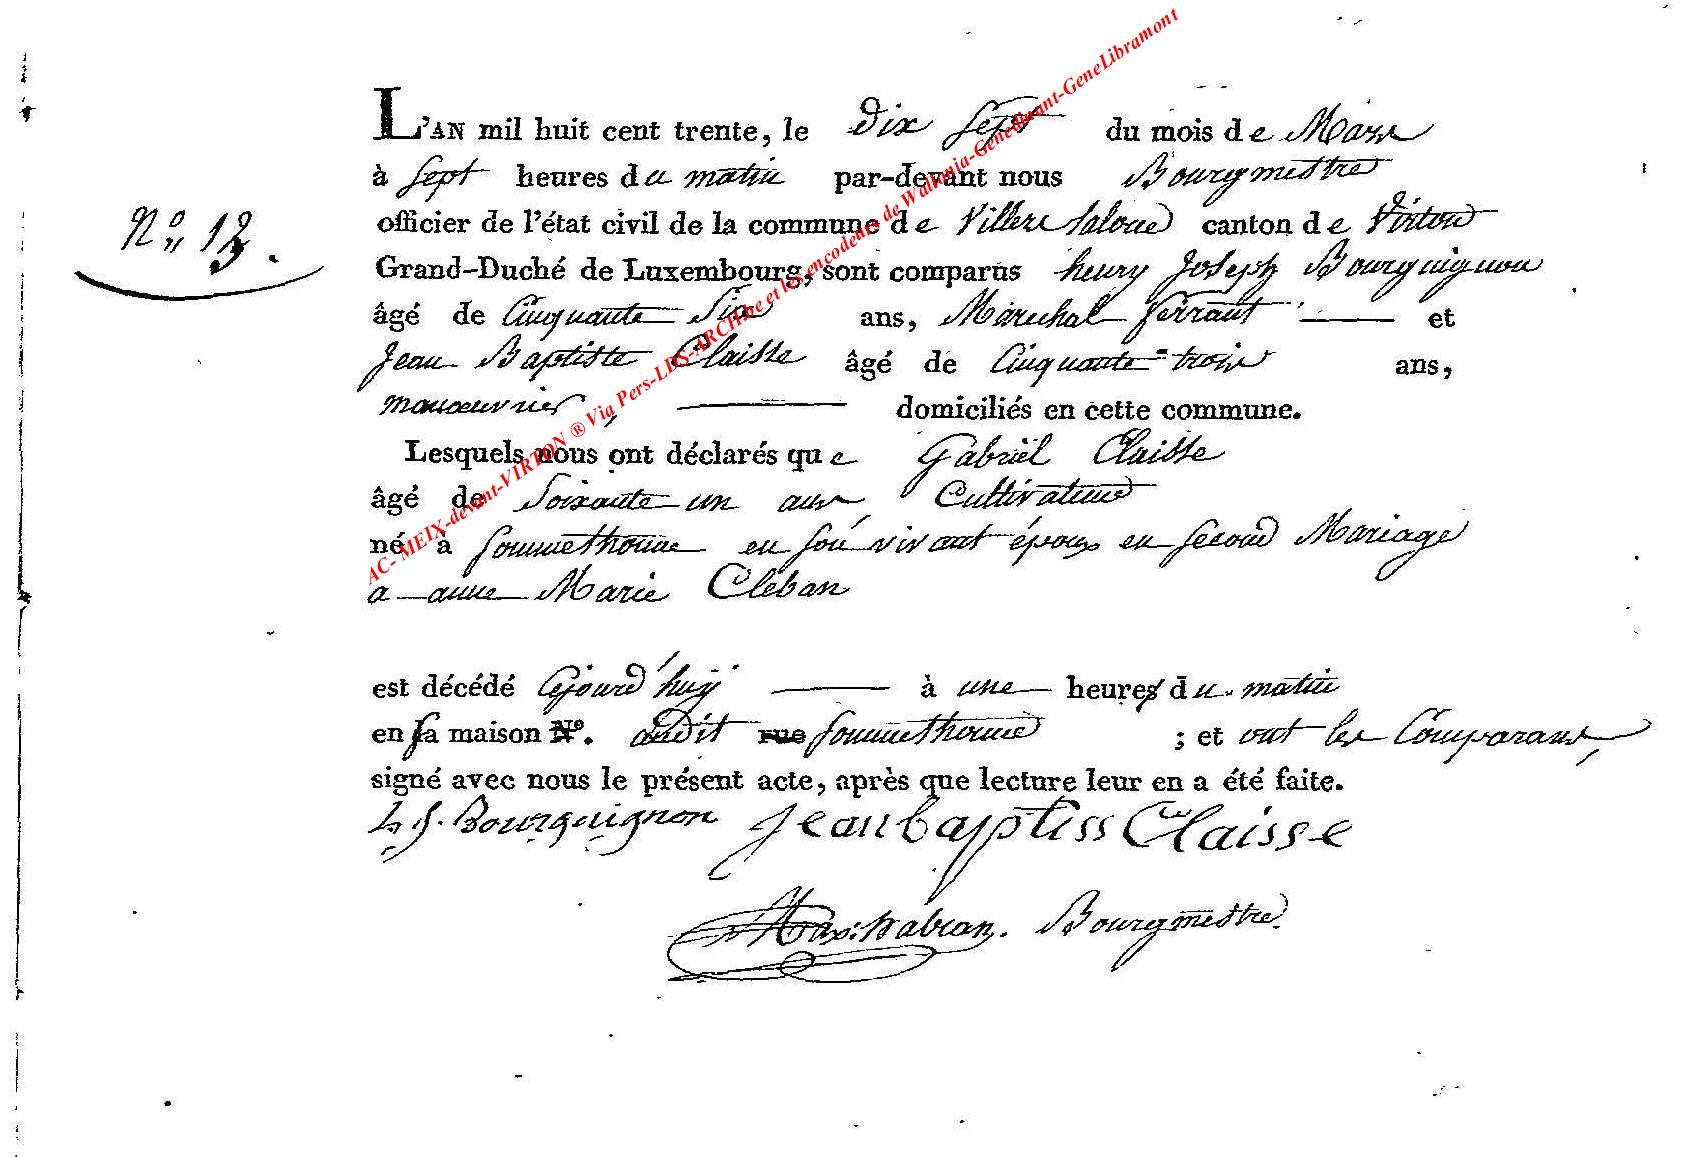 L'AN mil huit cent trente, le Dix Sept du mois de Mars
à Sept heures du matin par-devant nous Bourgmestre
N° 13.
officier de l'état civil de la commune de Villers laloue canton de Virton
Grand-Duché de Luxembourg, sont comparus henry Joseph Bourguignon
âgé de Cinquante Six ans, Marechal ferrant et
Jean Baptiste Claisse âgé de Cinquante-trois ans,
manœuvrier, domiciliés en cette commune.
Lesquels nous ont déclarés que Gabriël Claisse
âgé de Soixante un ans Cultivateur
né a Sommethonne en son vivant époux en second Mariage
a anne Marie Cleban
est décédé Cejourd'huÿ à une heures du matin
en sa maison N°. audit rue Sommethonne ; et ont les Comparans,
signé avec nous le présent acte, après que lecture leur en a été faite.
h J. Bourguignon Jean baptiss Claisse
Bourgmestre.
AC- MEIX-devant-VIRTON ® Via Pers-LDS-ARCH.be et les encodeurs de Wallonia-Genedinant-GeneLibramont